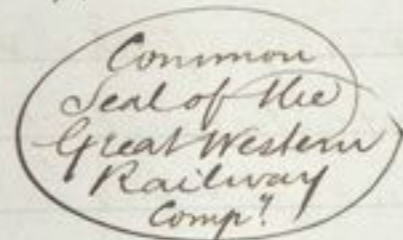 Common
Seal of the
Great Western
Railway
Compy.